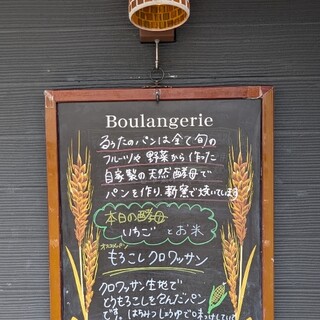 Boulangerie
るうたのパンは全て旬の
フルーツや野菜から作った
自家製の天然酵母で
パンを作り、薪窯で焼いています
本日の酵母
いちご とお米
オススメパン
もろこしクロワッサン
クロワッサン生地で
とうもろこしを包んだパン
です。はちみつしょうゆで味つけしてい